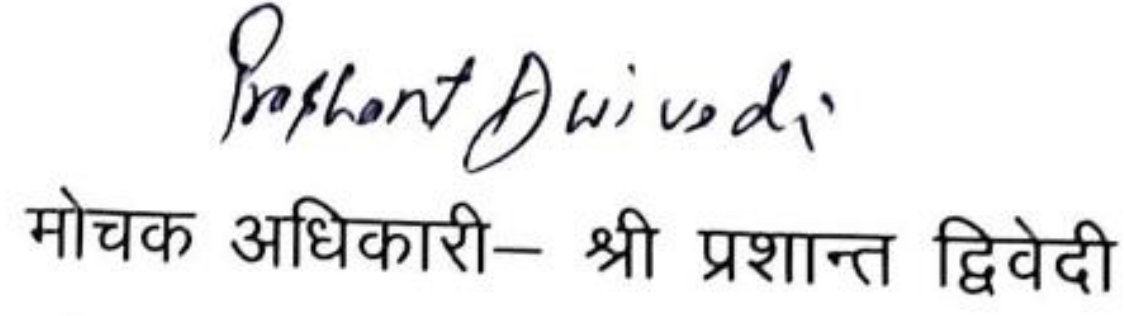 Prashant Dwivedi
मोचक अधिकारी– श्री प्रशान्त द्विवेदी